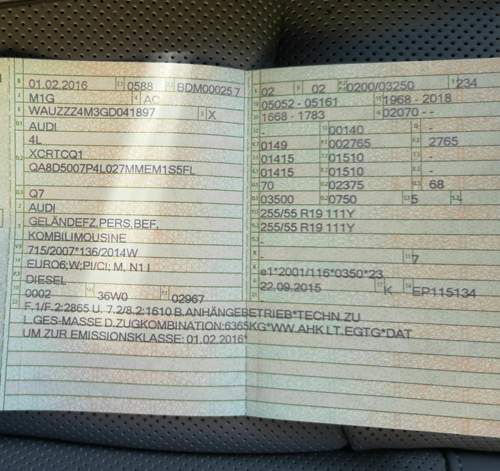 01.02.2016 0588 BDM000257
M1G AC
WAUZZZ4M3GD041897 X
AUDI
4L
XCRTCQ1
QA8D5007P4L027MMEM1S5FL
Q7
AUDI
GELÄNDEFZ.PERS.BEF.
KOMBILIMOUSINE
715/2007*136/2014W
EURO6;W;PI/CI; M, N1 I
DIESEL
0002 36W0 02967
02 02 0200/03250 234
05052 - 05161 1968 - 2018
1668 - 1783 02070 - -
- 00140 -
0149 002765 2765
01415 01510 -
01415 01510 -
70 02375 68
03500 0750 5 -
255/55 R19 111Y
255/55 R19 111Y
-
- 7
e1*2001/116*0350*23
22.09.2015 K EP115134
F.1/F.2:2865 U. 7.2/8.2:1610 B.ANHÄNGEBETRIEB*TECHN.ZU
L.GES-MASSE D.ZUGKOMBINATION:6365KG*WW.AHK LT.EGTG*DAT
UM ZUR EMISSIONSKLASSE: 01.02.2016*